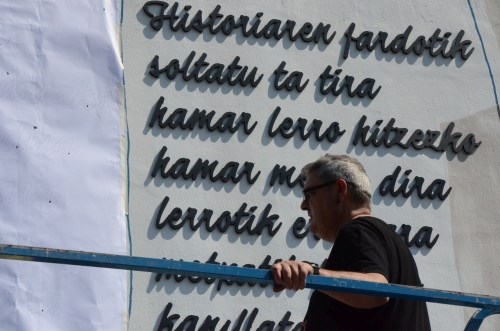 Historiaren fardotik
soltatu ta tira
hamar lerro hitzezko
hamar dira
lerrotik